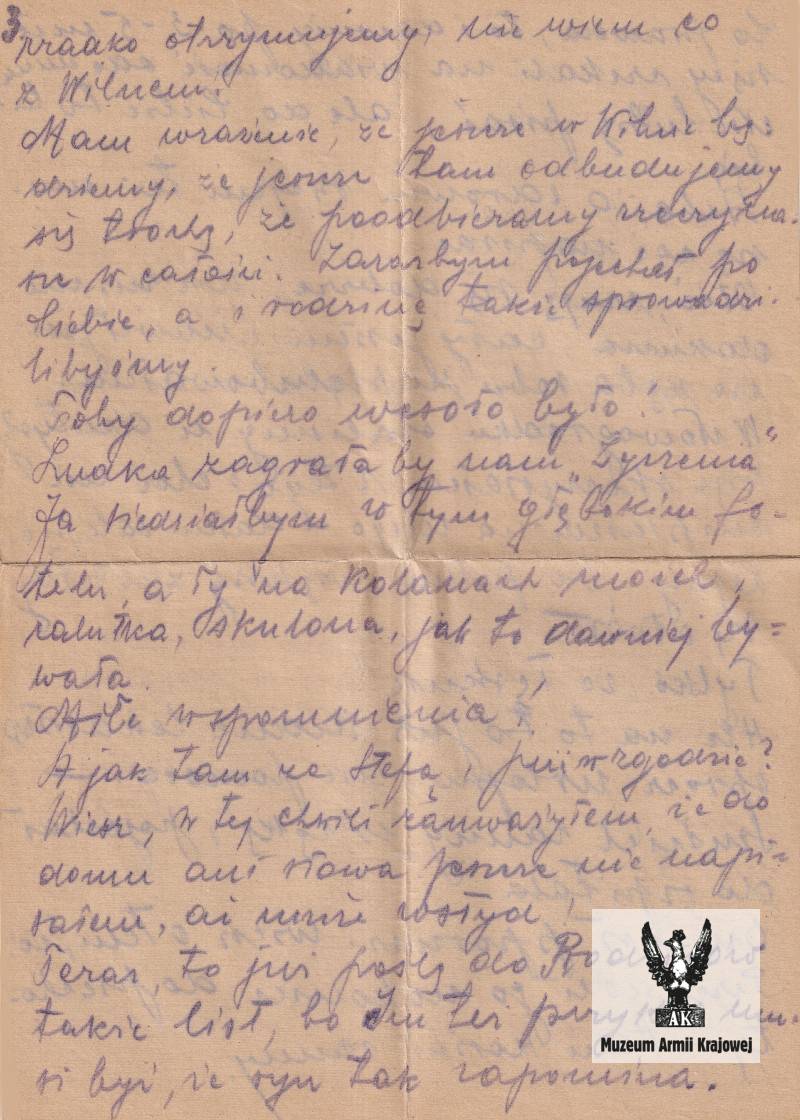 3
otrzymujemy, nie wiem co
z Wilnem!
Mam wrażenie, że jeszcze w Wilnie bę-
dziemy, że jeszcze tam odbudujemy
się trochę, że poodbieramy
w całości. Zarazbym pojechał po
Ciebie, a i rodzinę także sprowadzi-
libyśmy.
Toby dopiero wesoło było!
zagrała by nam „Życzenia"
Ja siedziałbym w tym głębokim fo-
telu, a Ty na kolanach moich,
malutka, skulona, jak to dawniej by=
wała.
Miłe wspomnienia!
A jak tam ze Stefą, już w zgodzie?
Wiesz, w tej chwili zauważyłem, że do
domu ani słowa jeszcze nie napi-
sałem, aż mnie wstyd!
Teraz, to już poślę do Rodziców
także list, bo Im też mu-
si być, że syn tak zapomina.
AK
Muzeum Armii Krajowej